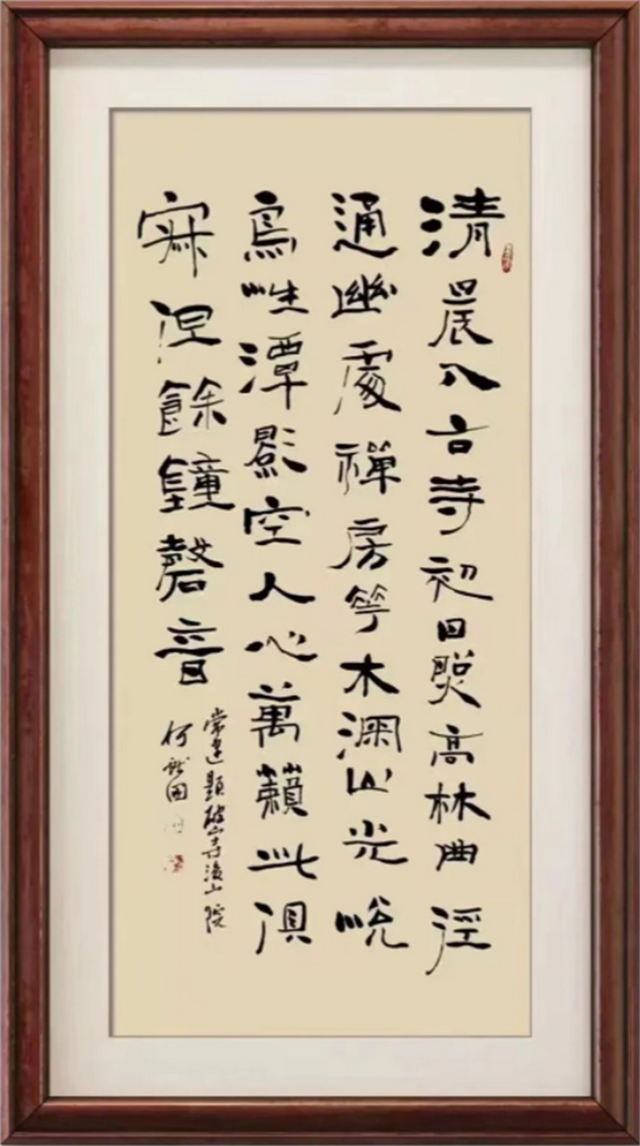 清晨入古寺初日照高林曲涇
通幽處禪房花木深山光悅
鳥性潭影空人心萬籟此俱
寂但餘鐘磬音
常建題破山寺後山院
何國